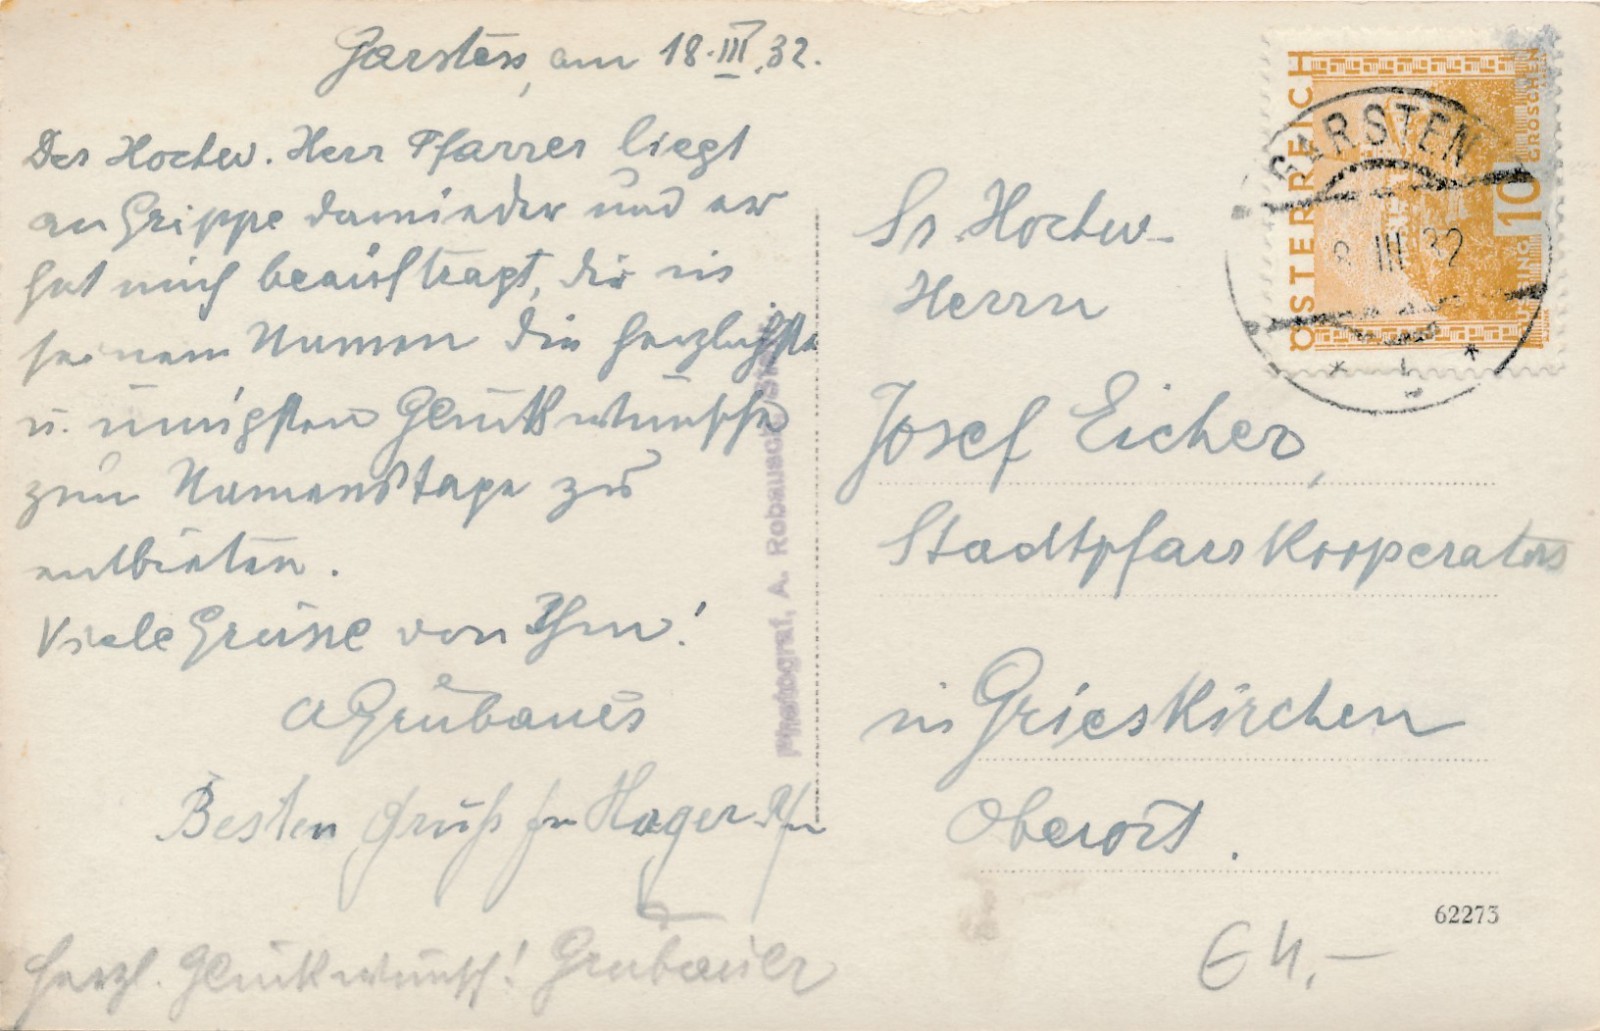 Garsten, am 18.III.32.
Der Hochw. Herr Pfarrer liegt
an Grippe darnieder und er
hat mich beauftragt, dir in
seinem Namen die herzlichsten
u. innigsten Glückwünsche
zum Namenstage zu
entbieten.
Viele Grüsse von Ihm!
A Grubauer
Besten Gruß Hager
herzl. Glückwunsch! Grubauer
Photograf, A. Robausch
Sr. Hochw.
Herrn
Josef Eicher,
Stadtpfarrkooperators
in Grieskirchen
Oberöst.
62273
€ 4,-
ÖSTERREICH
10
GROSCHEN
GARSTEN
8 III 32